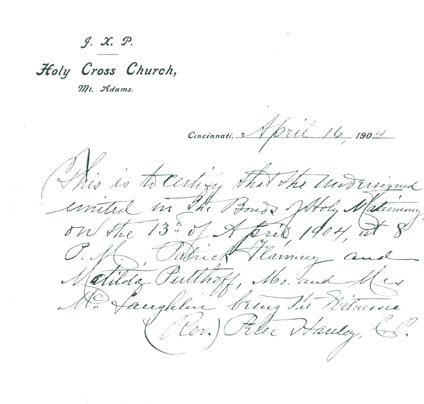 J. X. P.
Holy Cross Church,
Mt. Adams.
Cincinnati, April 16, 1904
This is to certify that the undersigned
united in the Bonds of Holy Matrimony,
on the 13th of April, 1904, at 8
P. M., Patrick Flannery and
Matilda Pulthoff, Mr. and Mrs
Mc Laughlin being the Witnesses
(Rev.) Hanley, C.P.